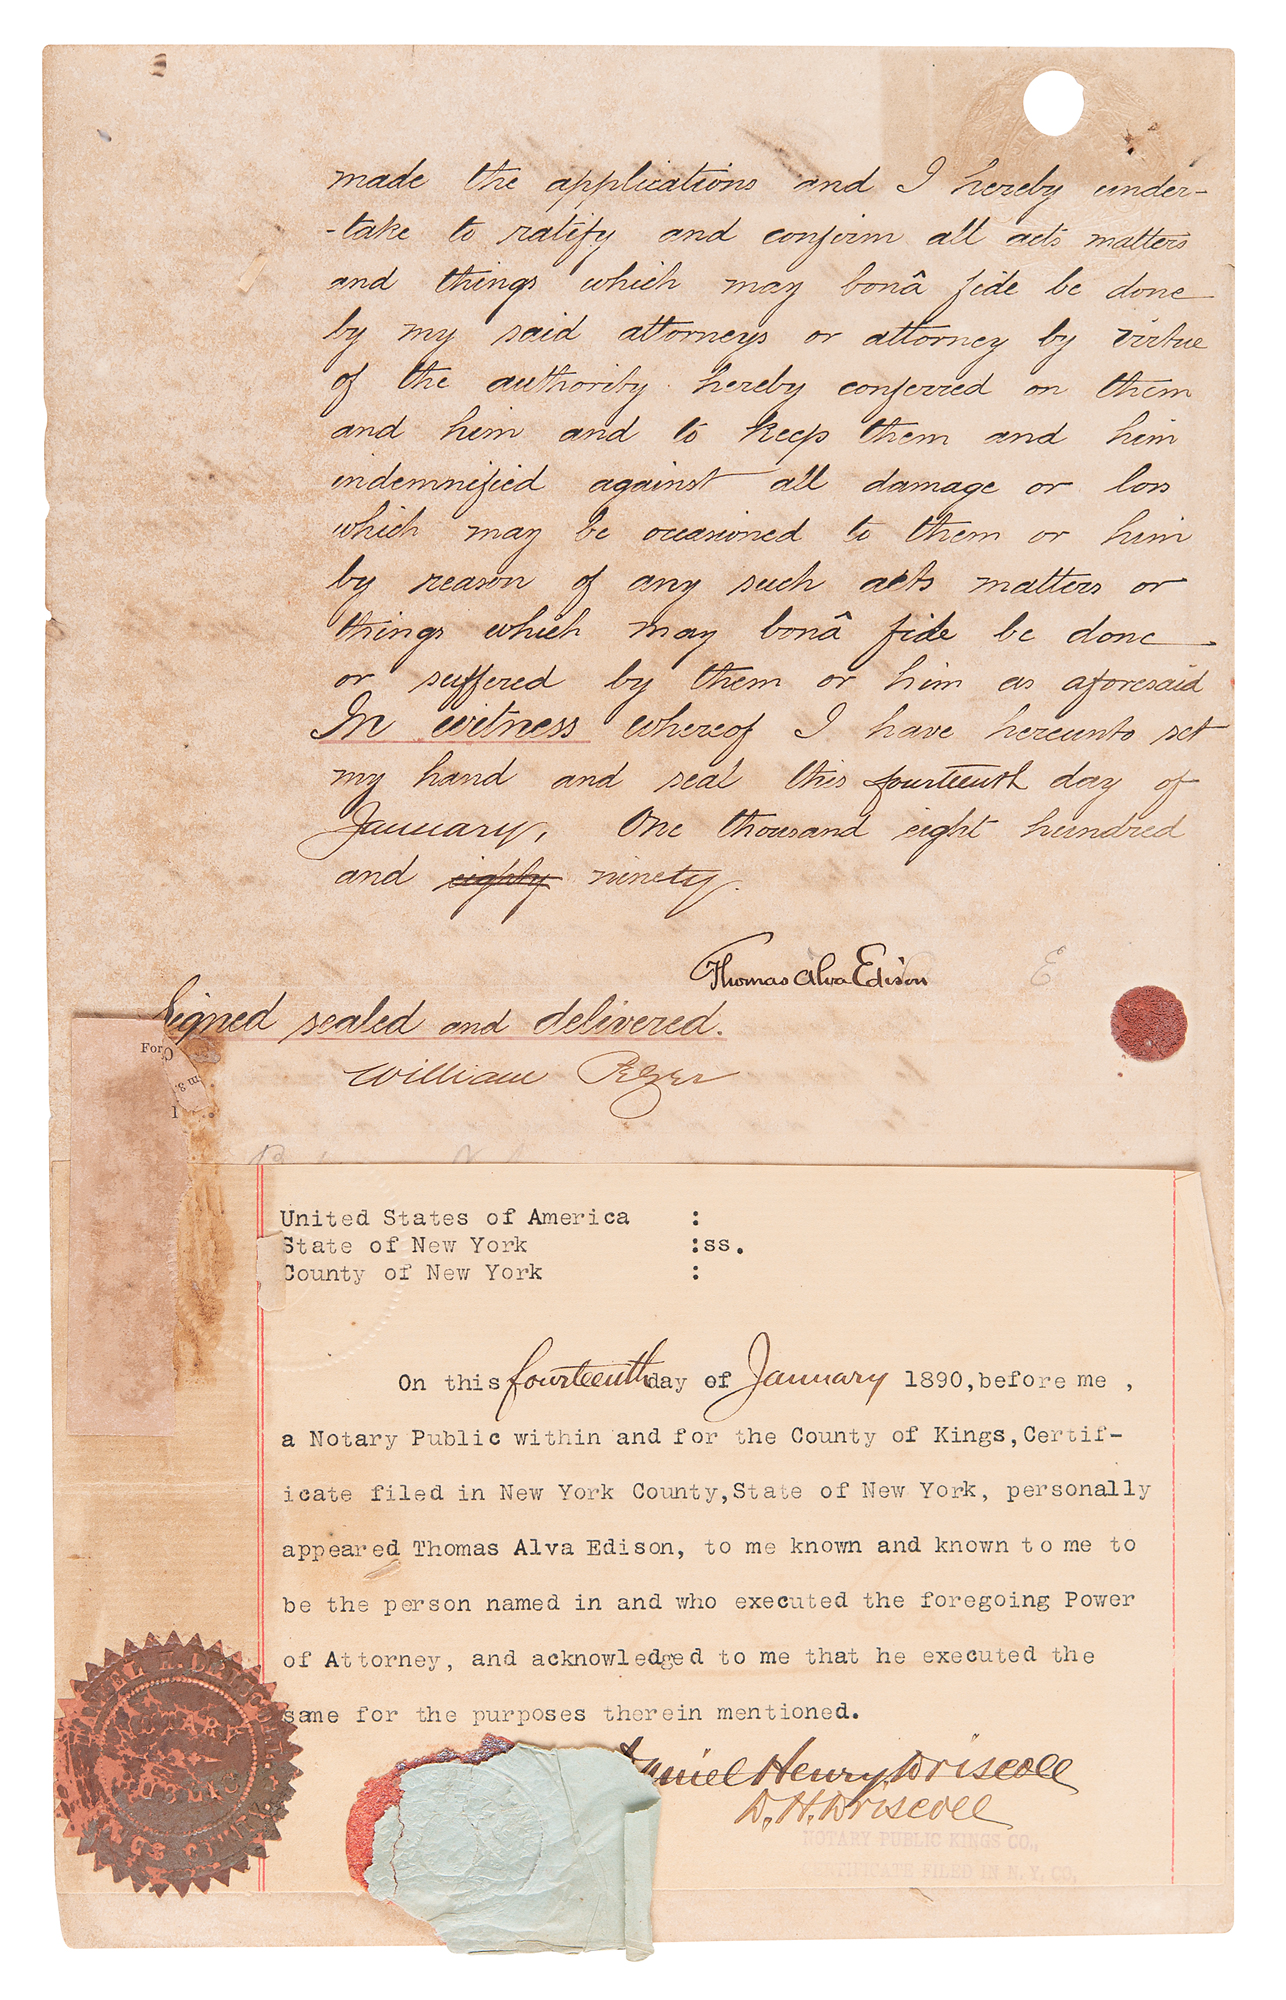 made the applications and I hereby under-
-take to ratify and confirm all acts matters
and things which may bonâ fide be done
by my said attorneys or attorney by virtue
of the authority hereby conferred on them
and him and to keep them and him
indemnified against all damage or loss
which may be occasioned to them or him
by reason of any such acts matters or
things which may bonâ fide be done
or suffered by them or him as aforesaid
In witness whereof I have hereunto set
my hand and seal this fourteenth day of
January, One thousand eight hundred
and eighty ninety.
Thomas Alva Edison
E
Signed sealed and delivered.
For
William Pelzer
United States of America :
State of New York :ss.
County of New York :
On this fourteenth day of January 1890, before me ,
a Notary Public within and for the County of Kings, Certif-
icate filed in New York County, State of New York, personally
appeared Thomas Alva Edison, to me known and known to me to
be the person named in and who executed the foregoing Power
of Attorney, and acknowledged to me that he executed the
same for the purposes therein mentioned.
Daniel Henry Driscoll
D. H. Driscoll
NOTARY PUBLIC KINGS CO.,
CERTIFICATE FILED IN N. Y. CO.
NOTARY
PUBLIC
KINGS COUNTY